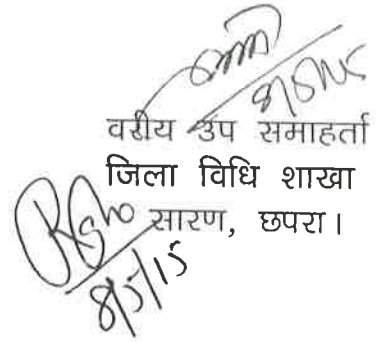 8/5/15
वरीय उप समाहर्ता
जिला विधि शाखा
सारण, छपरा।
8/5/15